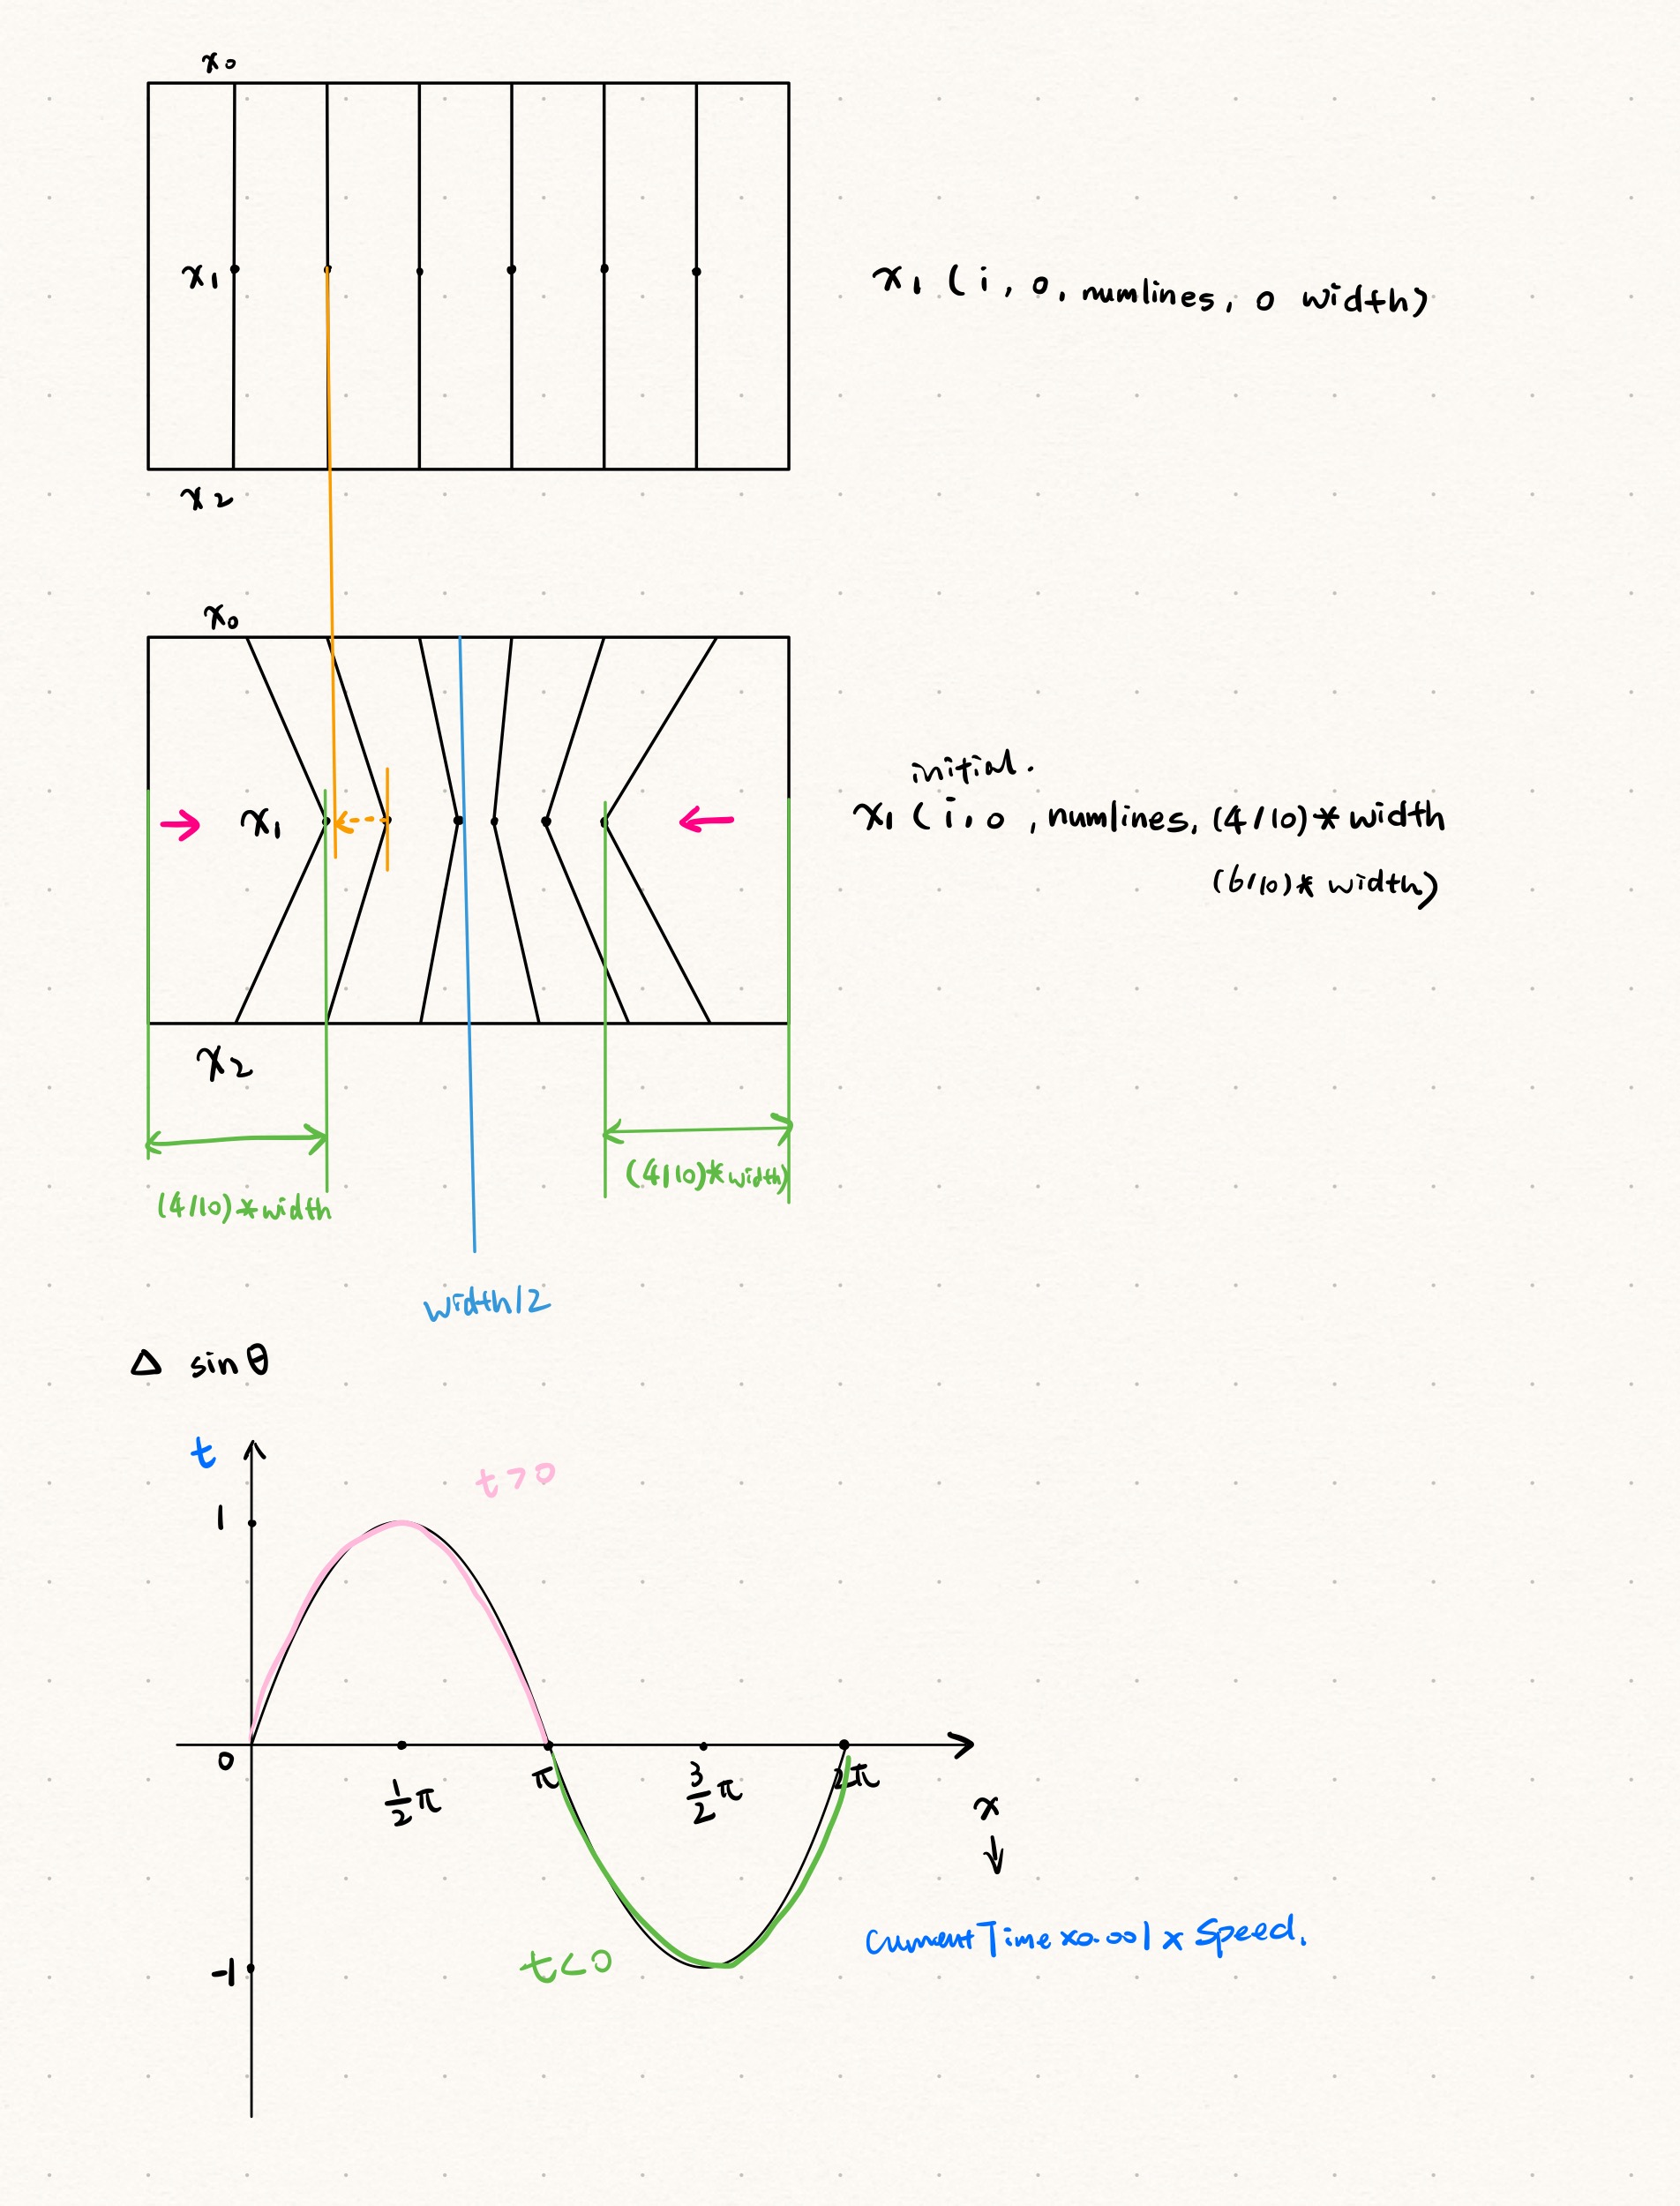 x0
x1
x1 (i, 0, numlines, 0 width)
x2
x0
initial.
x1
x1 (i, 0, numlines, (4/10)* width
(6/10)* width)
x2
(4/10)*width
(4/10)*width
width/2
Δ sinθ
t
t>0
1
0
1/2 π
π
3/2 π
2π
x
↓
CurrentTime x0.001 x Speed.
t<0
-1